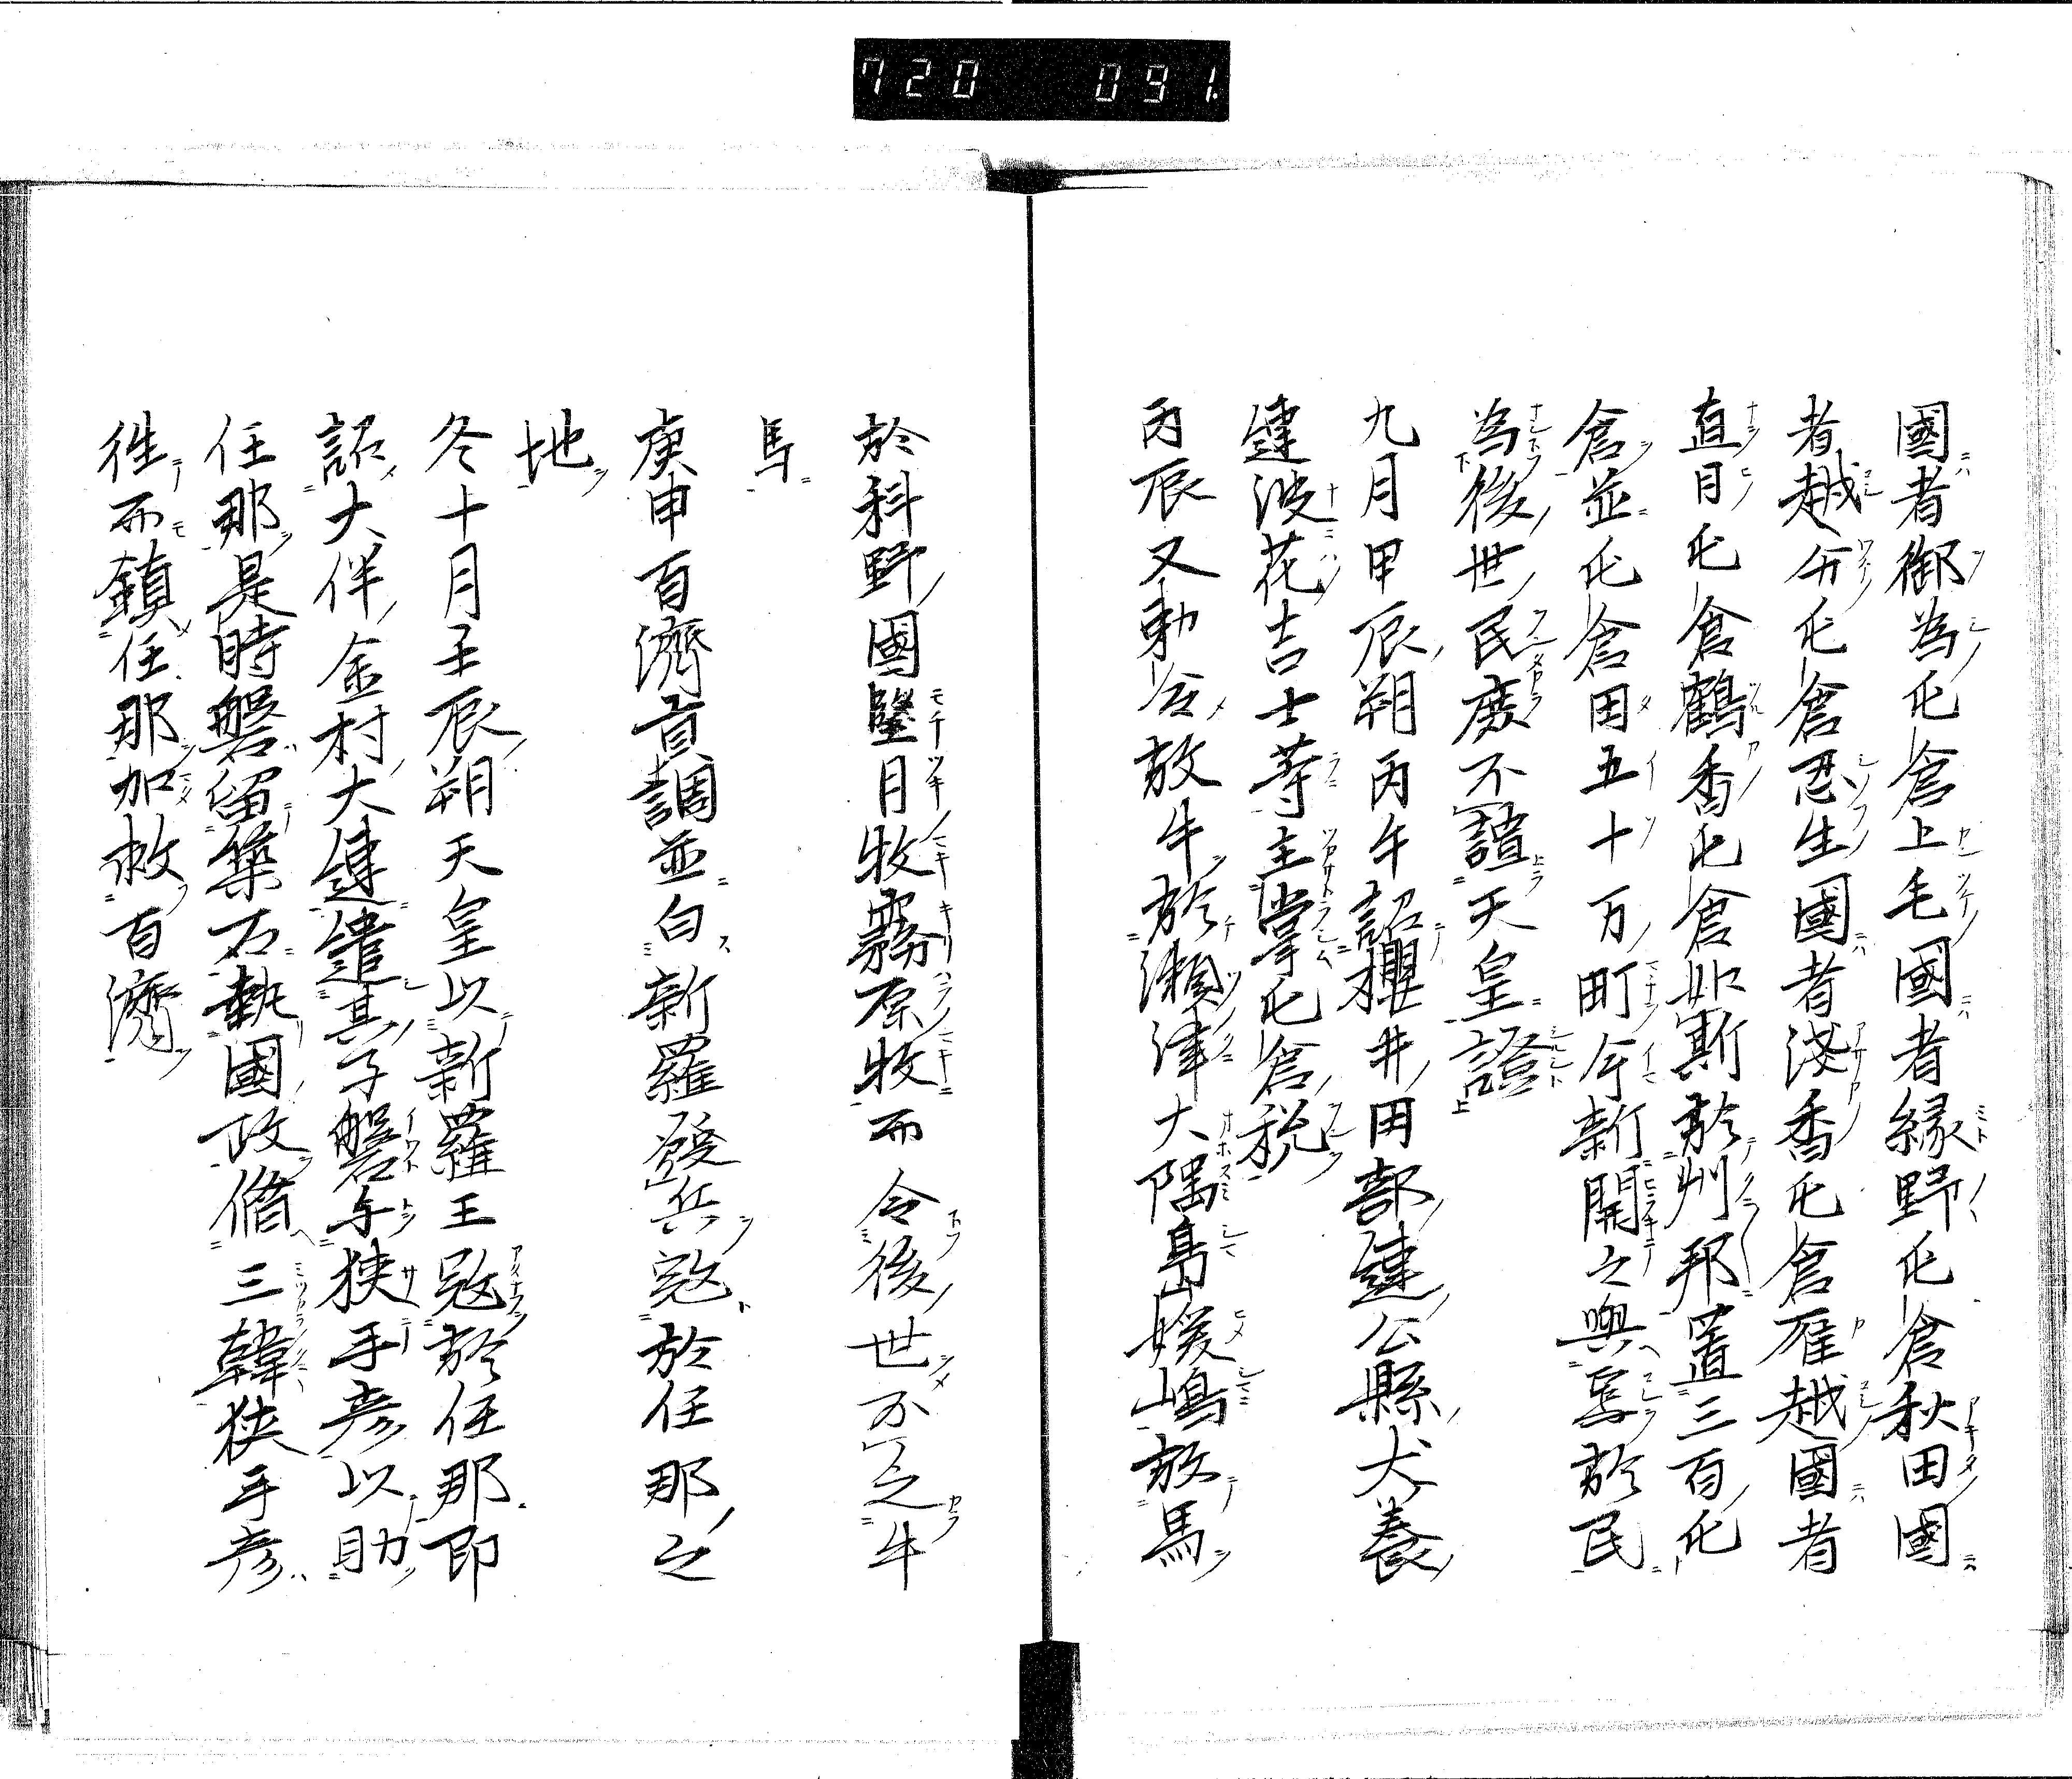 720 091.
國者御為屯倉上毛國者緑野屯倉秋田國
者越分屯倉忍生國者淺香屯倉雁越國者
直日屯倉鶴香屯倉如斯於州邦置三百屯
倉並屯倉田五十万町今新開之與焉於民
為後世民廣不諠天皇證
九月甲辰朔丙午詔櫻井田部連公縣犬養
連波花吉士等主掌屯倉税
丙辰又勅云放牛於瀬津大隅島媛嶋放馬
於科野國墾月牧霧原牧而令後世不乏牛
馬
庚申百濟貢調並白新羅發兵寇於任那之
地
冬十月壬辰朔天皇以新羅王寇於任那即
詔大伴金村大連遣其子磐与狭手彦以助
任那是時磐留築石執國政脩三韓狭手彦
徃而鎮任那加救百濟